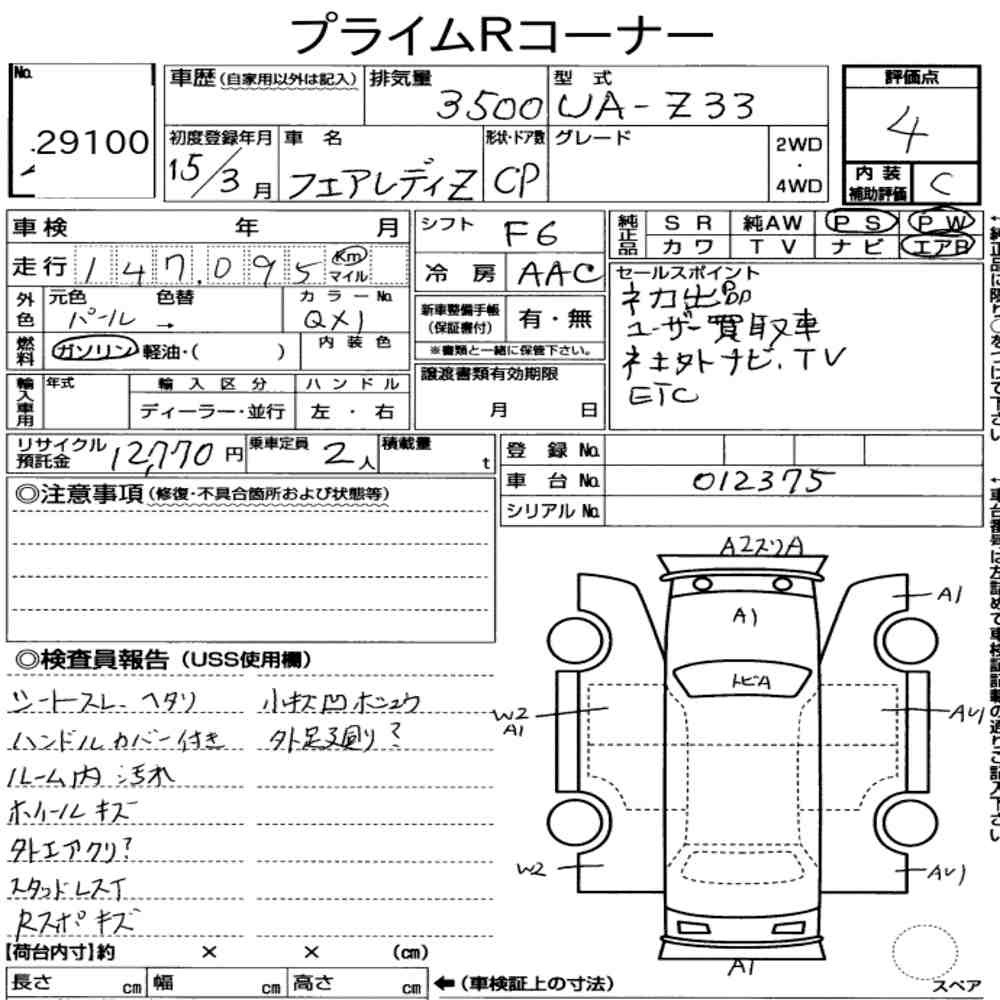 プライムRコーナー
No.
29100
車歴(自家用以外は記入)
排気量
3500
型 式
UA-Z33
評価点
4
初度登録年月
15/3月
車 名
フェアレディZ
形状・ドア数
CP
グレード
2WD
・
4WD
内 装
補助評価
C
車検 年 月
シフト
F6
純正品
SR 純AW PS PW
カワ TV ナビ エアB
走行 147.095 Km マイル
冷 房
AAC
セールスポイント
ネカ出品
ユーザー買取車
ネ土外ナビ.TV
ETC
外色
元色 色替
パール →
カラーNo.
QX1
新車整備手帳
(保証書付)
有・無
※書類と一緒に保管下さい。
燃料
ガソリン・軽油・( )
内 装 色
輸入車用
年式
輸 入 区 分
ディーラー・並行
ハンドル
左 ・ 右
譲渡書類有効期限
月 日
リサイクル
預託金
12,770円
乗車定員
2人
積載量
t
登 録 No.
車 台 No.
012375
シリアル No.
◎注意事項(修復・不具合箇所および状態等)
◎検査員報告(USS使用欄)
シートスレ、ヘタリ
ハンドルカバー付き
ルーム内汚れ
ホイールキズ
外エアクリ?
スタッドレスT
Rスポキズ
小キズ凹ホシュウ
外足マワリ?
A2スリA
A1
A1
トビA
W2
A1
AU1
W2
AU1
A1
スペア
【荷台内寸】約 × × (cm)
長さ cm 幅 cm 高さ cm
←(車検証上の寸法)